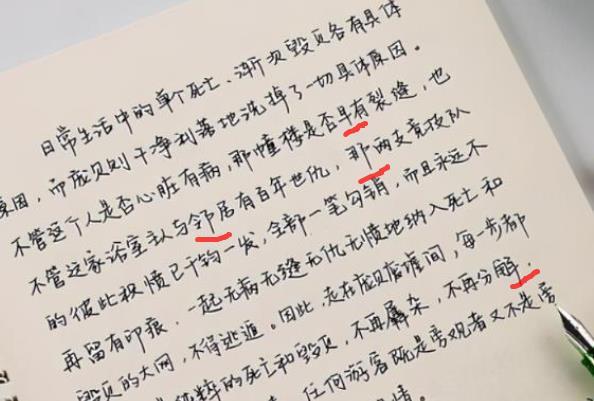 日常生活中的单个死亡、渐次毁灭各有具体
原因,而庞贝则干净利落地洗掉了一切具体原因。
不管这个人是否心脏有病,那幢楼是否早有裂缝,也
不管这家浴室主人与邻居有百年世仇,那两支竞技队
的彼此积愤已千钧一发,全部一笔勾销,而且永远不
再留有印痕,一起无病无缝无仇无愤地纳入死亡和
毁灭的大网,不得逃遁。因此,走在庞贝废墟间,每一步都
纯粹的死亡和毁灭,不再羼杂,不再分解.
任何游客既是旁观者又不是旁
情。